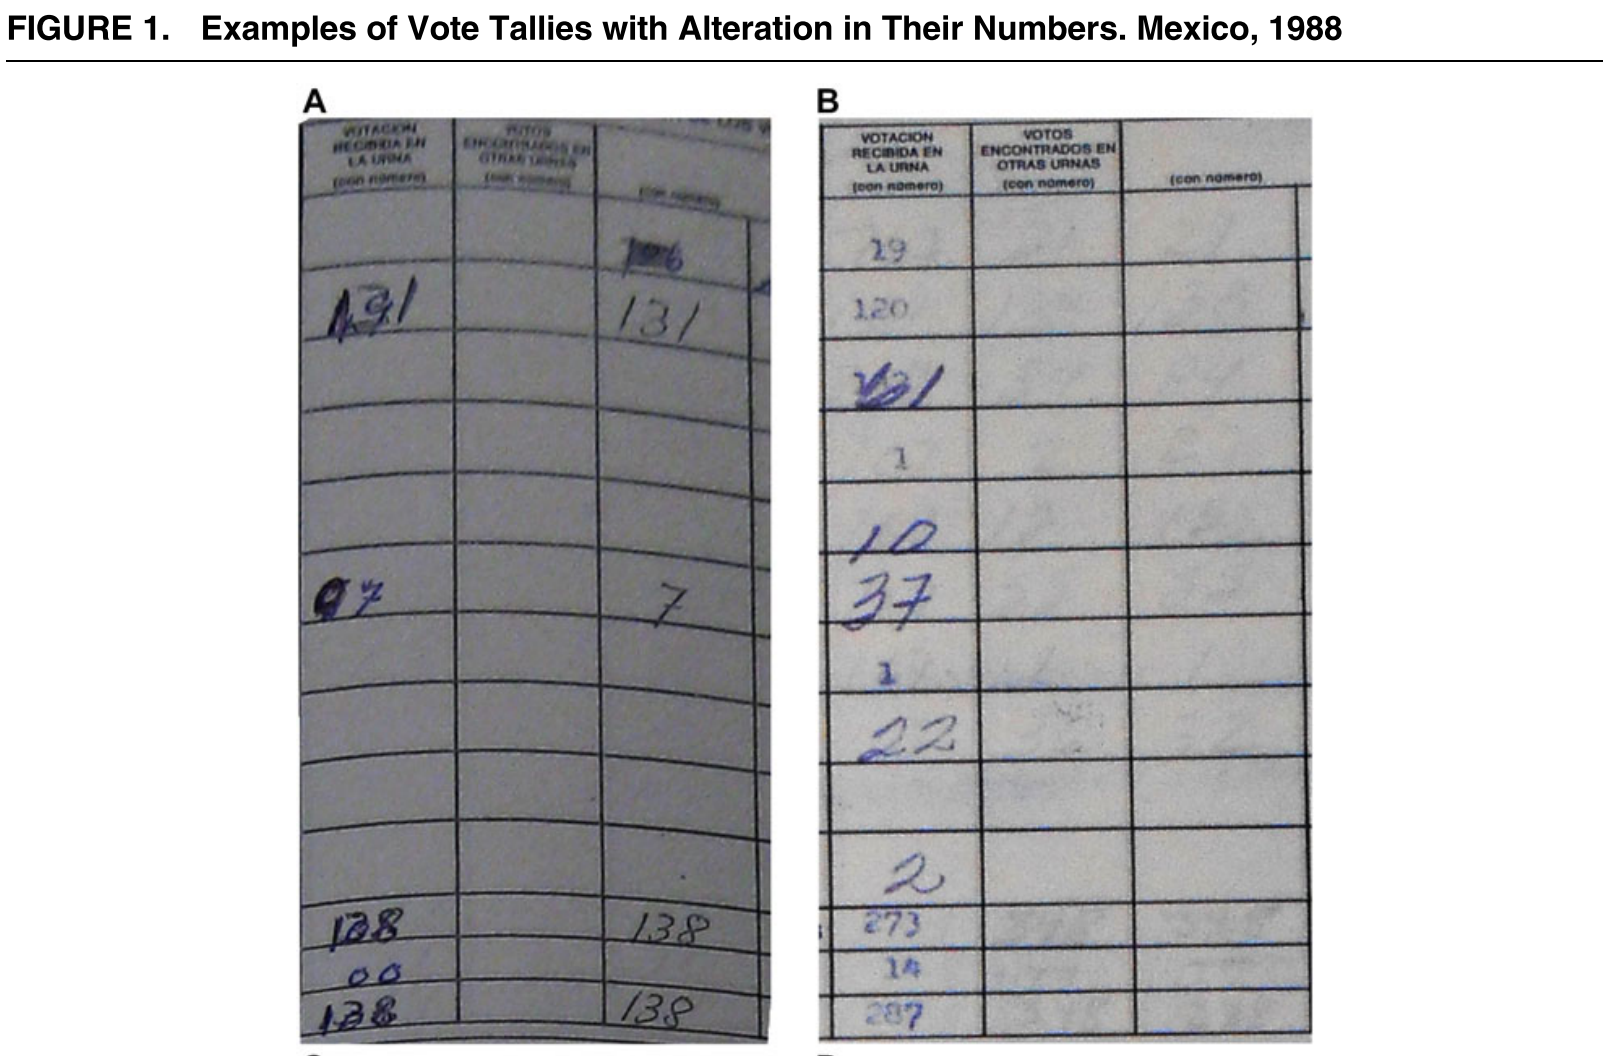 FIGURE 1. Examples of Vote Tallies with Alteration in Their Numbers. Mexico, 1988
A
VOTACION
RECIBIDA EN
LA URNA
(con número)
VOTOS
ENCONTRADOS EN
OTRAS URNAS
(con número)
(con número)
131
7
138
138
00
138
138
B
VOTACION
RECIBIDA EN
LA URNA
(con número)
VOTOS
ENCONTRADOS EN
OTRAS URNAS
(con número)
(con número)
19
120
1
10
37
1
22
2
273
14
287